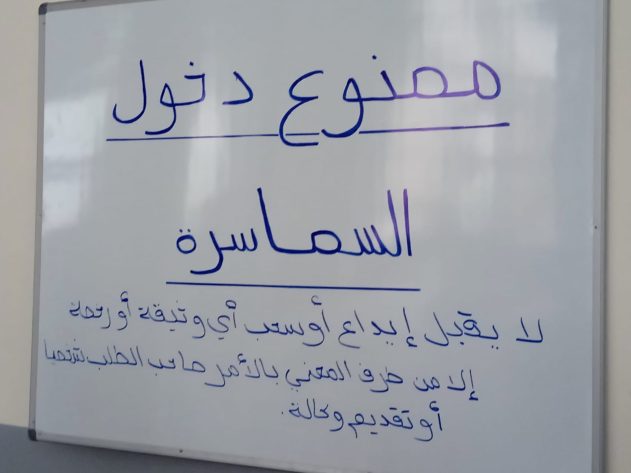 ممنوع دخول
السماسرة
لا يقبل إيداع أو سحب أي وثيقة أو رخصة
إلا من طرف المعني بالأمر صاحب الطلب شخصيا
أو تقديم وكالة.